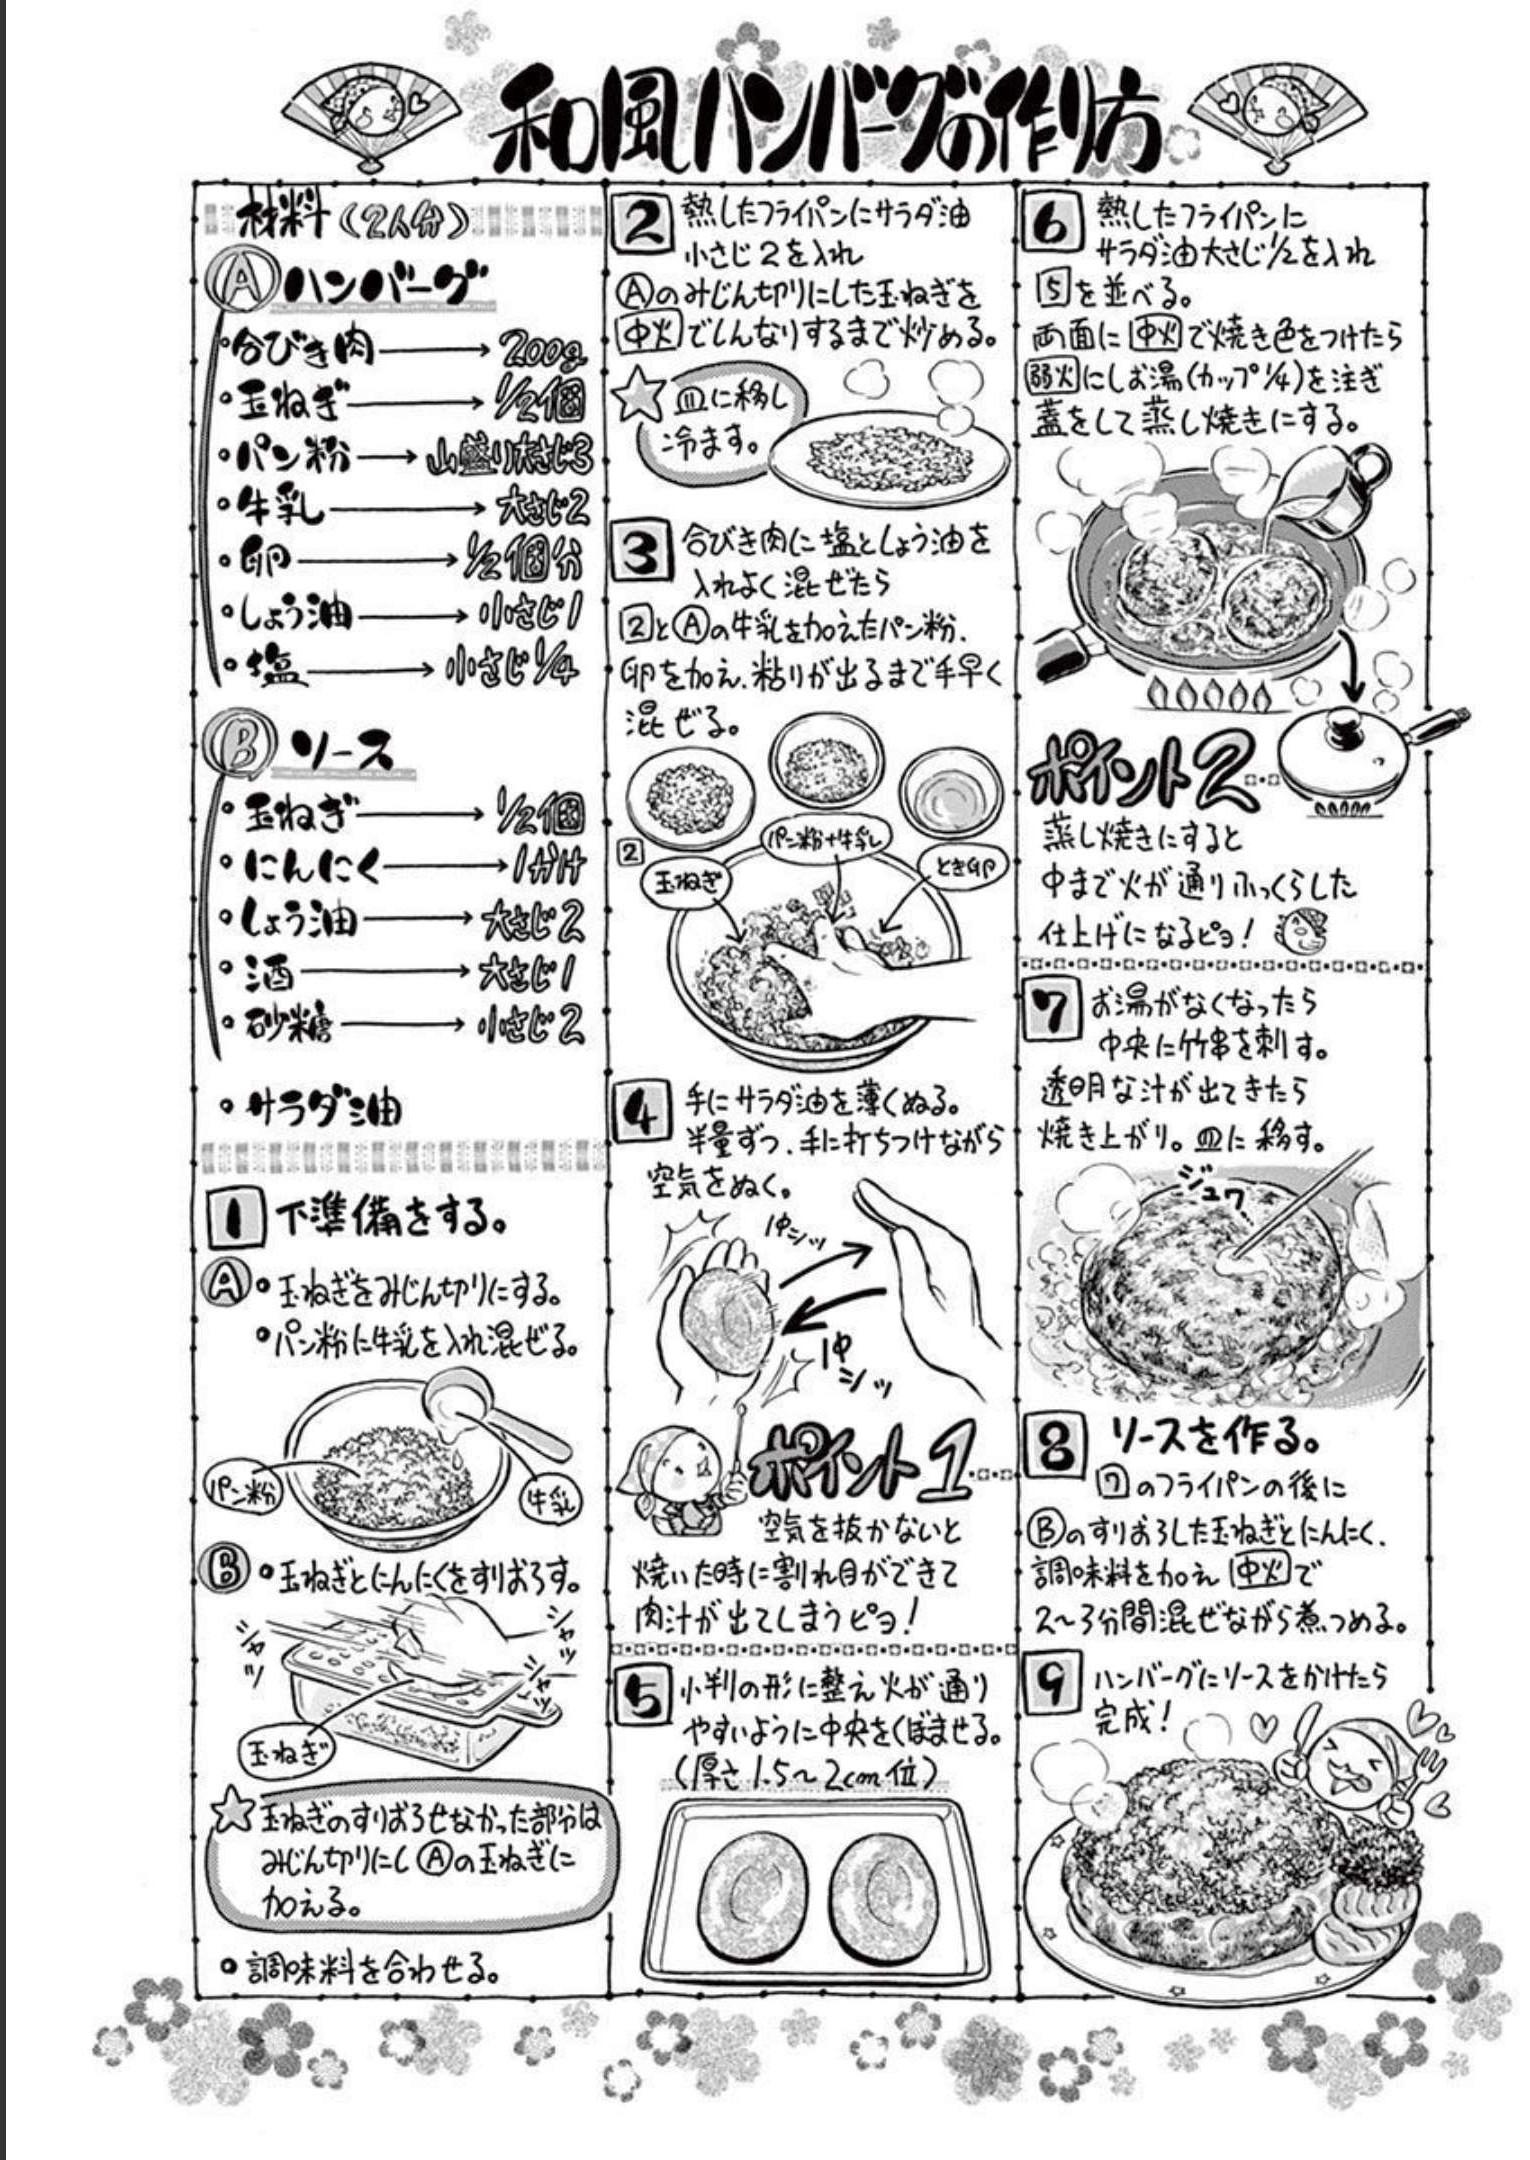 和風ハンバーグの作り方
材料(2人分)
Ⓐハンバーグ
・合びき肉→200g
・玉ねぎ→1/2個
・パン粉→山盛り大さじ3
・牛乳→大さじ2
・卵→1/2個分
・しょう油→小さじ1
・塩→小さじ1/4
Ⓑソース
・玉ねぎ→1/2個
・にんにく→1かけ
・しょう油→大さじ2
・酒→大さじ1
・砂糖→小さじ2
・サラダ油
1 下準備をする。
Ⓐ・玉ねぎをみじん切りにする。
・パン粉に牛乳を入れ混ぜる。
パン粉
牛乳
Ⓑ・玉ねぎとにんにくをすりおろす。
シャッ
シャッ
シャッ
玉ねぎ
☆玉ねぎのすりおろせなかった部分は
みじん切りにしⒶの玉ねぎに
加える。
・調味料を合わせる。
2 熱したフライパンにサラダ油
小さじ2を入れ
Ⓐのみじん切りにした玉ねぎを
中火でしんなりするまで炒める。
☆皿に移し
冷ます。
3 合びき肉に塩としょう油を
入れよく混ぜたら
2とⒶの牛乳を加えたパン粉、
卵を加え、粘りが出るまで手早く
混ぜる。
2
玉ねぎ
パン粉+牛乳
とき卵
4 手にサラダ油を薄くぬる。
半量ずつ、手に打ちつけながら
空気をぬく。
ポイント1
空気を抜かないと
焼いた時に割れ目ができて
肉汁が出てしまうピヨ!
5 小判の形に整え火が通り
やすいように中央をくぼませる。
(厚さ1.5~2cm位)
6 熱したフライパンに
サラダ油大さじ1/2を入れ
5を並べる。
両面に中火で焼き色をつけたら
弱火にしお湯(カップ1/4)を注ぎ
蓋をして蒸し焼きにする。
ポイント2
蒸し焼きにすると
中まで火が通りふっくらした
仕上げになるピヨ!
7 お湯がなくなったら
中央に竹串を刺す。
透明な汁が出てきたら
焼き上がり。皿に移す。
ジュワ
8 ソースを作る。
7のフライパンの後に
Ⓑのすりおろした玉ねぎとにんにく、
調味料を加え中火で
2~3分間混ぜながら煮つめる。
9 ハンバーグにソースをかけたら
完成!